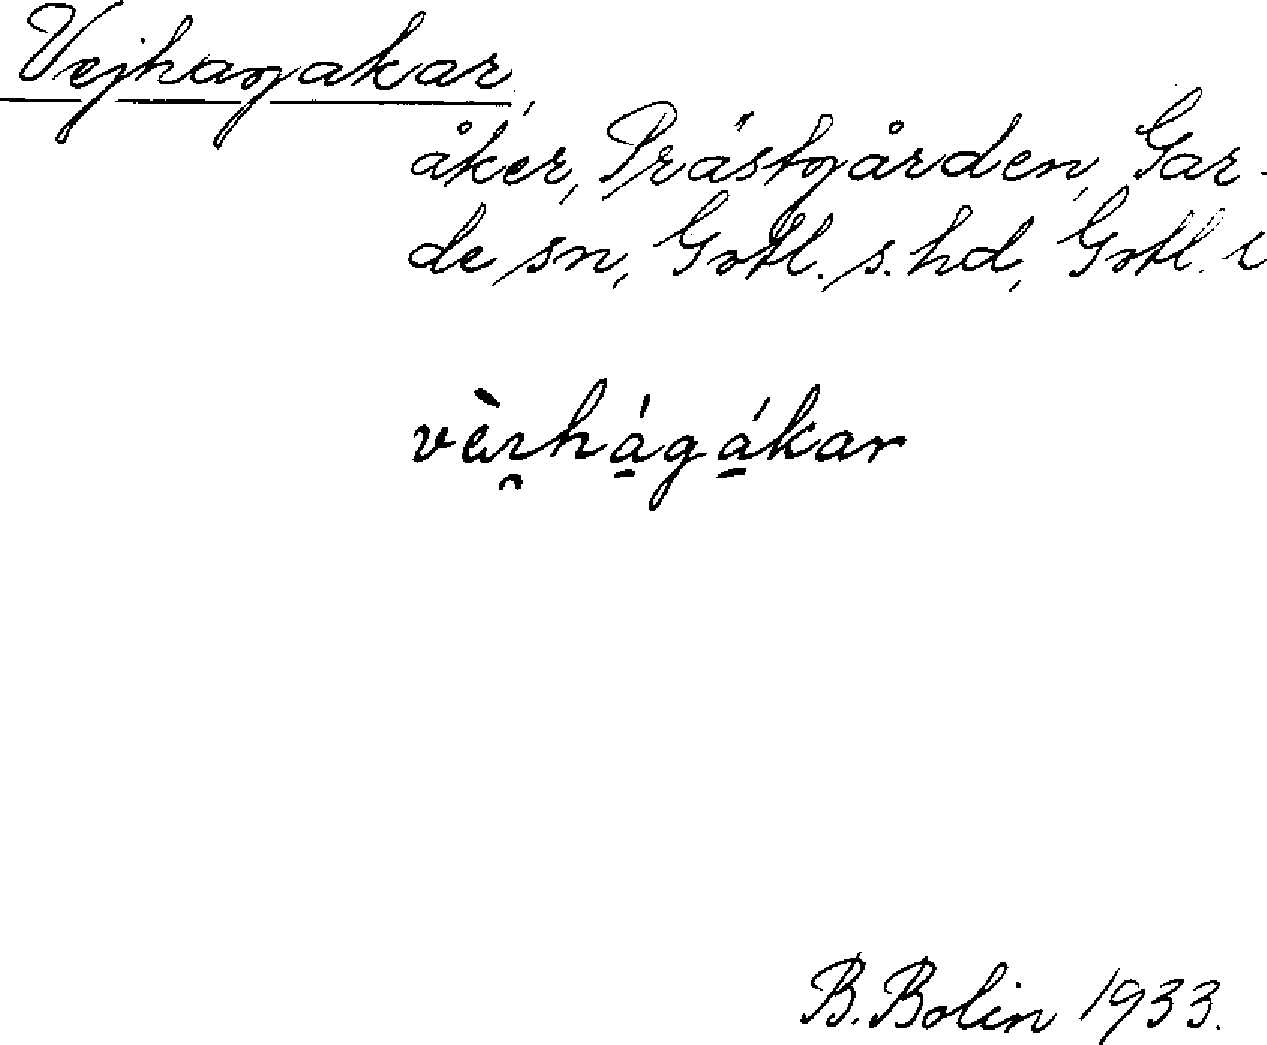 Vejhagakar,
åker, Prästgården, Gar-
de sn, Gotl. s. hd, Gotl. l
vèɪ̯há̠gá̠kar
B. Bolin 1933.